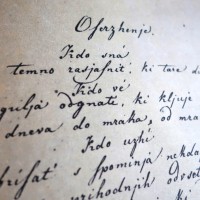 Oserzhenje.
Kdo sná
temno rasjasnit', ki tare d
Kdo vé
gulja odgnati, ki kljuje
dneva do mraka, od mra
Kdo uzhí
brisat' s spominja nekda
prihodnjih odvset
ki